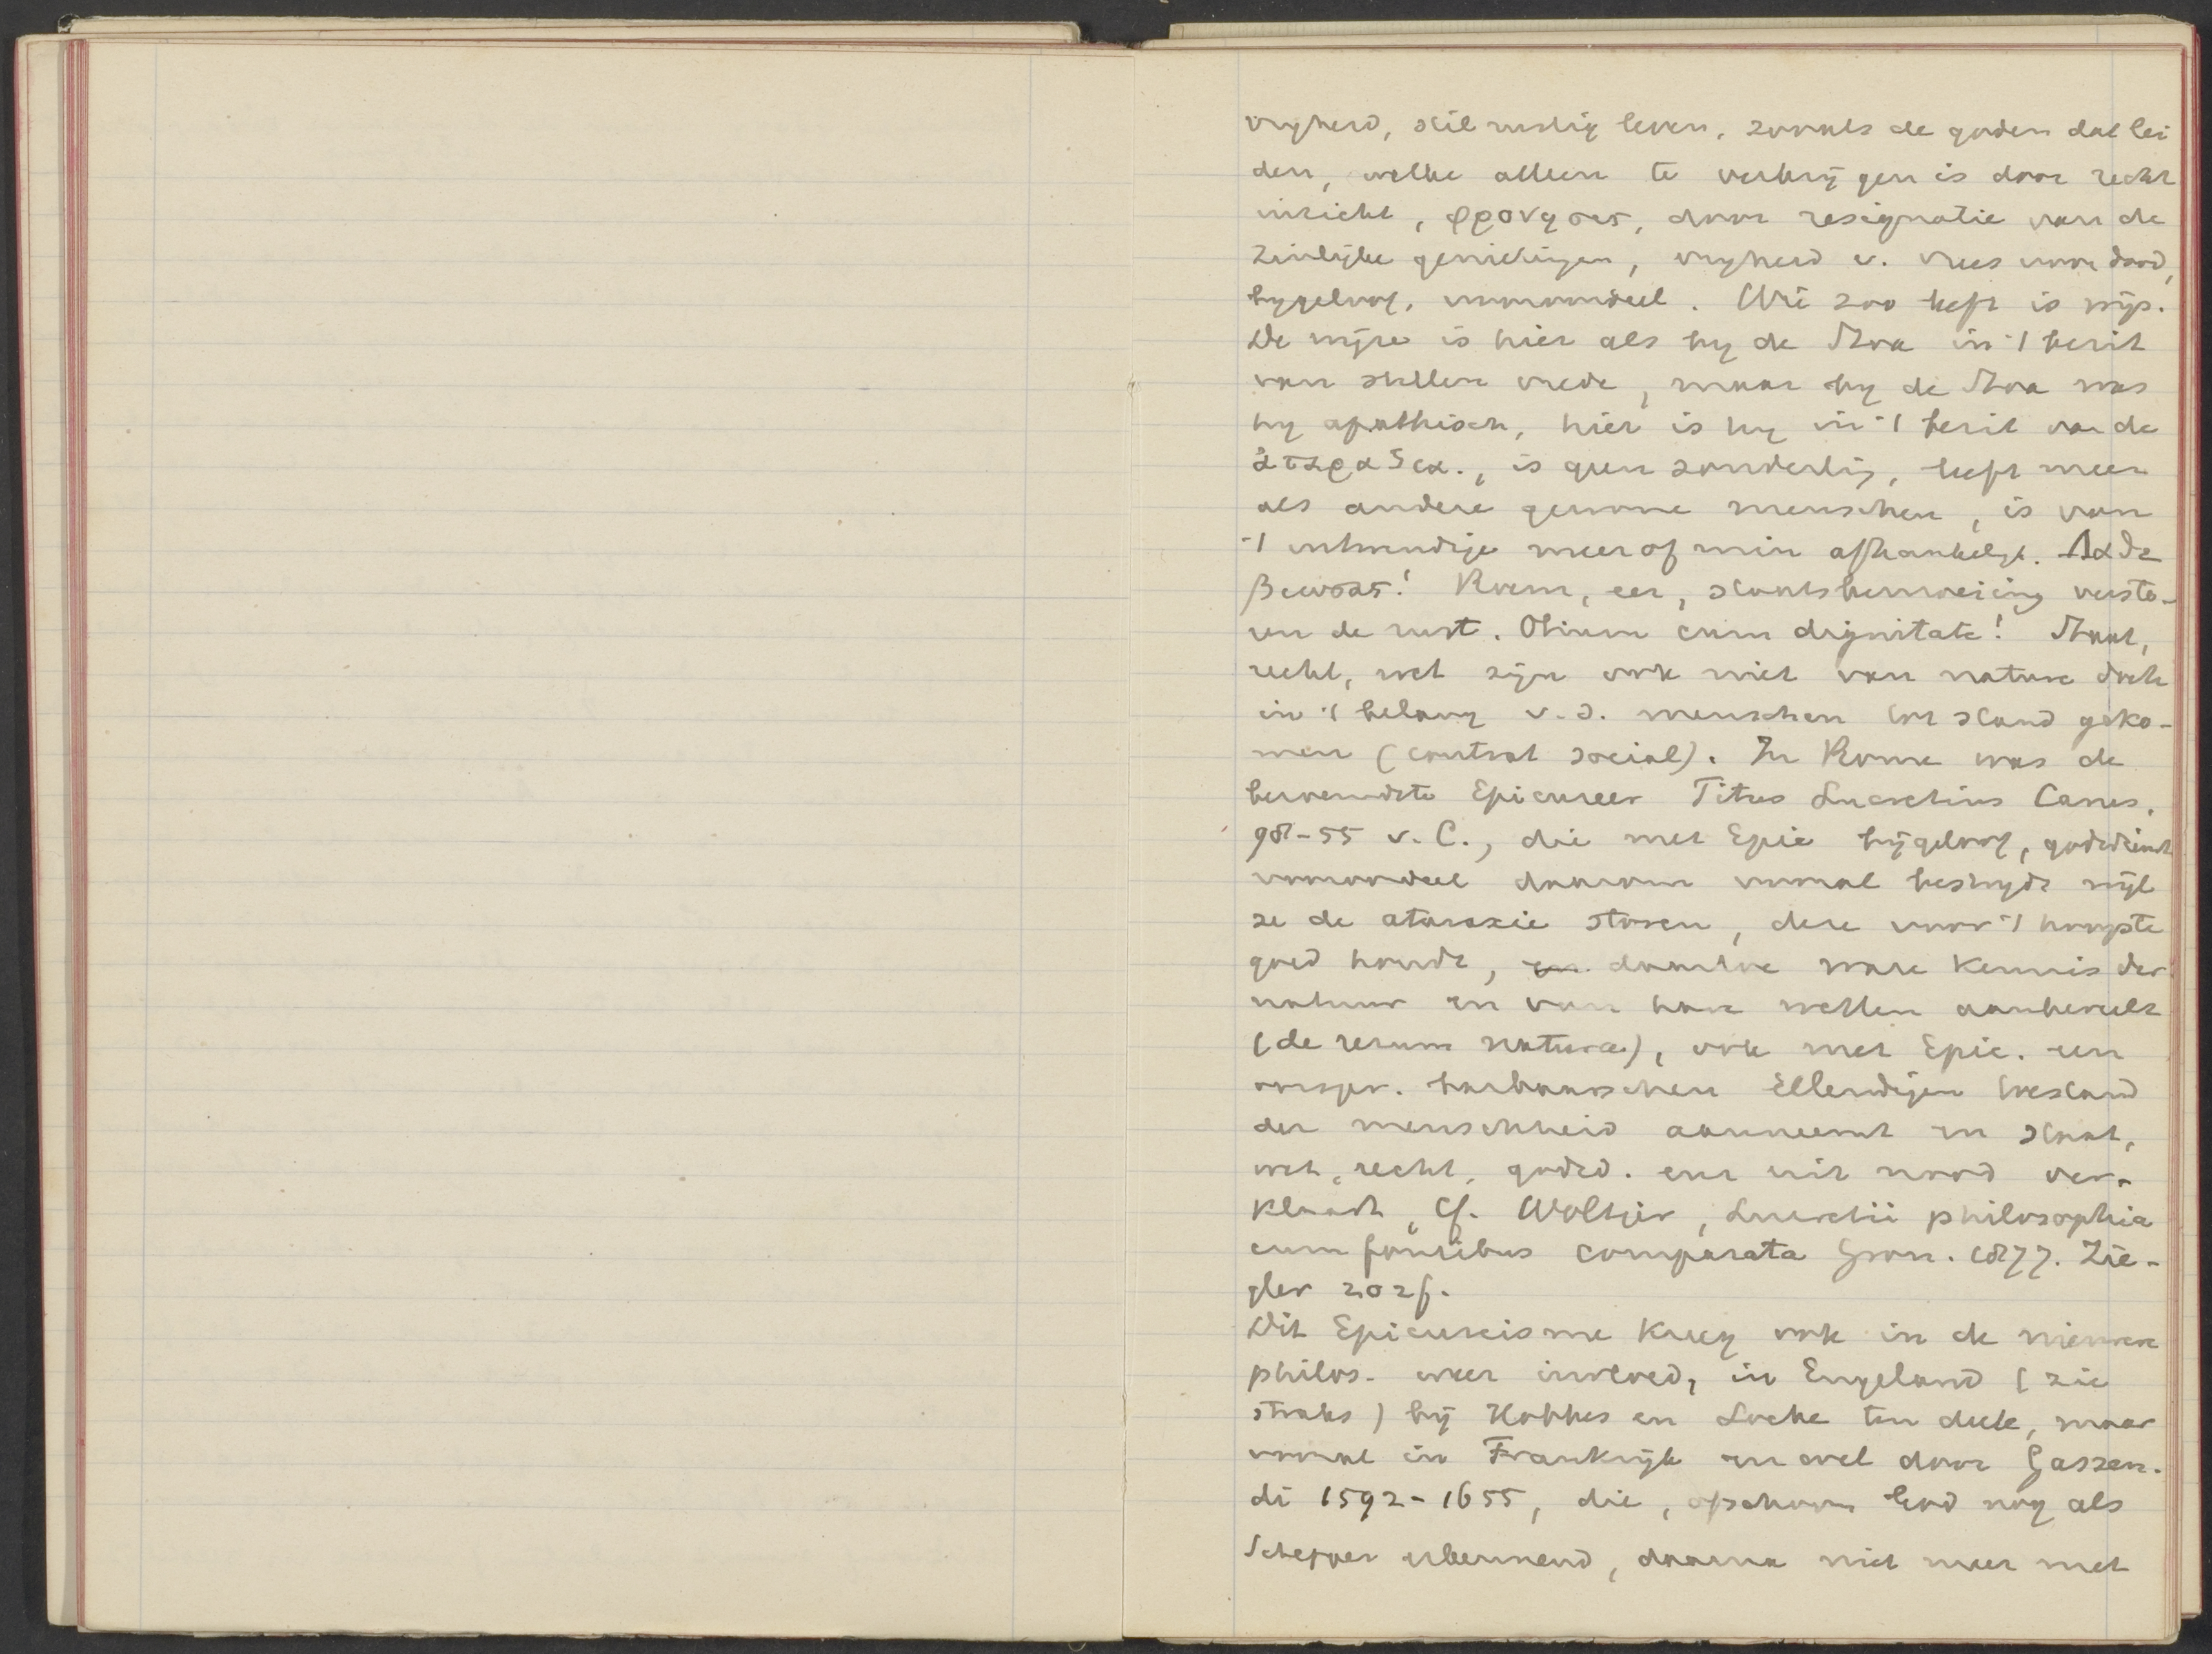 vryheid, stil rustig leven, zooals de goden dat lei
den, welke alleen te verkrijgen is door recht
inzicht, φρονησις, door resignatie van de
zinlijke genietingen, vryheid v. vrees voor dood,
bygeloof, vooroordeel. Wie zoo leeft is wijs.
De wijze is hier als by de Stoa in 't bezit
van stillen vrede, maar by de Stoa was
hy apathisch, hier is hy in 't bezit van de
ἀταραξια., is geen zonderling, leeft meer
als andere gewone menschen, is van
't uitwendige meer of min afhankelijk. Λαθε
βιωσας! Roem, eer, staatsbemoeiing versto-
ren de rust. Otium cum dignitate! Staat,
recht, wet zijn ook niet van nature doch
in 't belang v.d. menschen tot stand geko-
men (contrat social). In Rome was de
beroemdste Epicureer Titus Lucretius Carus,
98-55 v. C., die met Epic bijgeloof, godsdienst
vooroordeel daarom vooral bestrydt wijl
ze de ataraxie storen, deze voor 't hoogste
goed houdt, en daartoe ware kennis der
natuur en van hare wetten aanbeveelt
(de rerum natura), ook met Epic. een
oorspr. barbaarschen Ellendigen toestand
der menschheid aanneemt en staat,
wet, recht, godsd. enz uit nood ver-
klaart, Cf. Woltjer, Lucretii philosophia
cum fontibus comparata Gron. 1877. Zie-
gler 202f.
Dit Epicureisme kreeg ook in de nieuwere
philos. weer invloed, in Engeland (zie
straks) bij Hobbes en Locke ten deele, maar
vooral in Frankrijk en wel door Gassen-
di 1592-1655, die, ofschoon God nog als
Schepper erkennend, daarna niet meer met